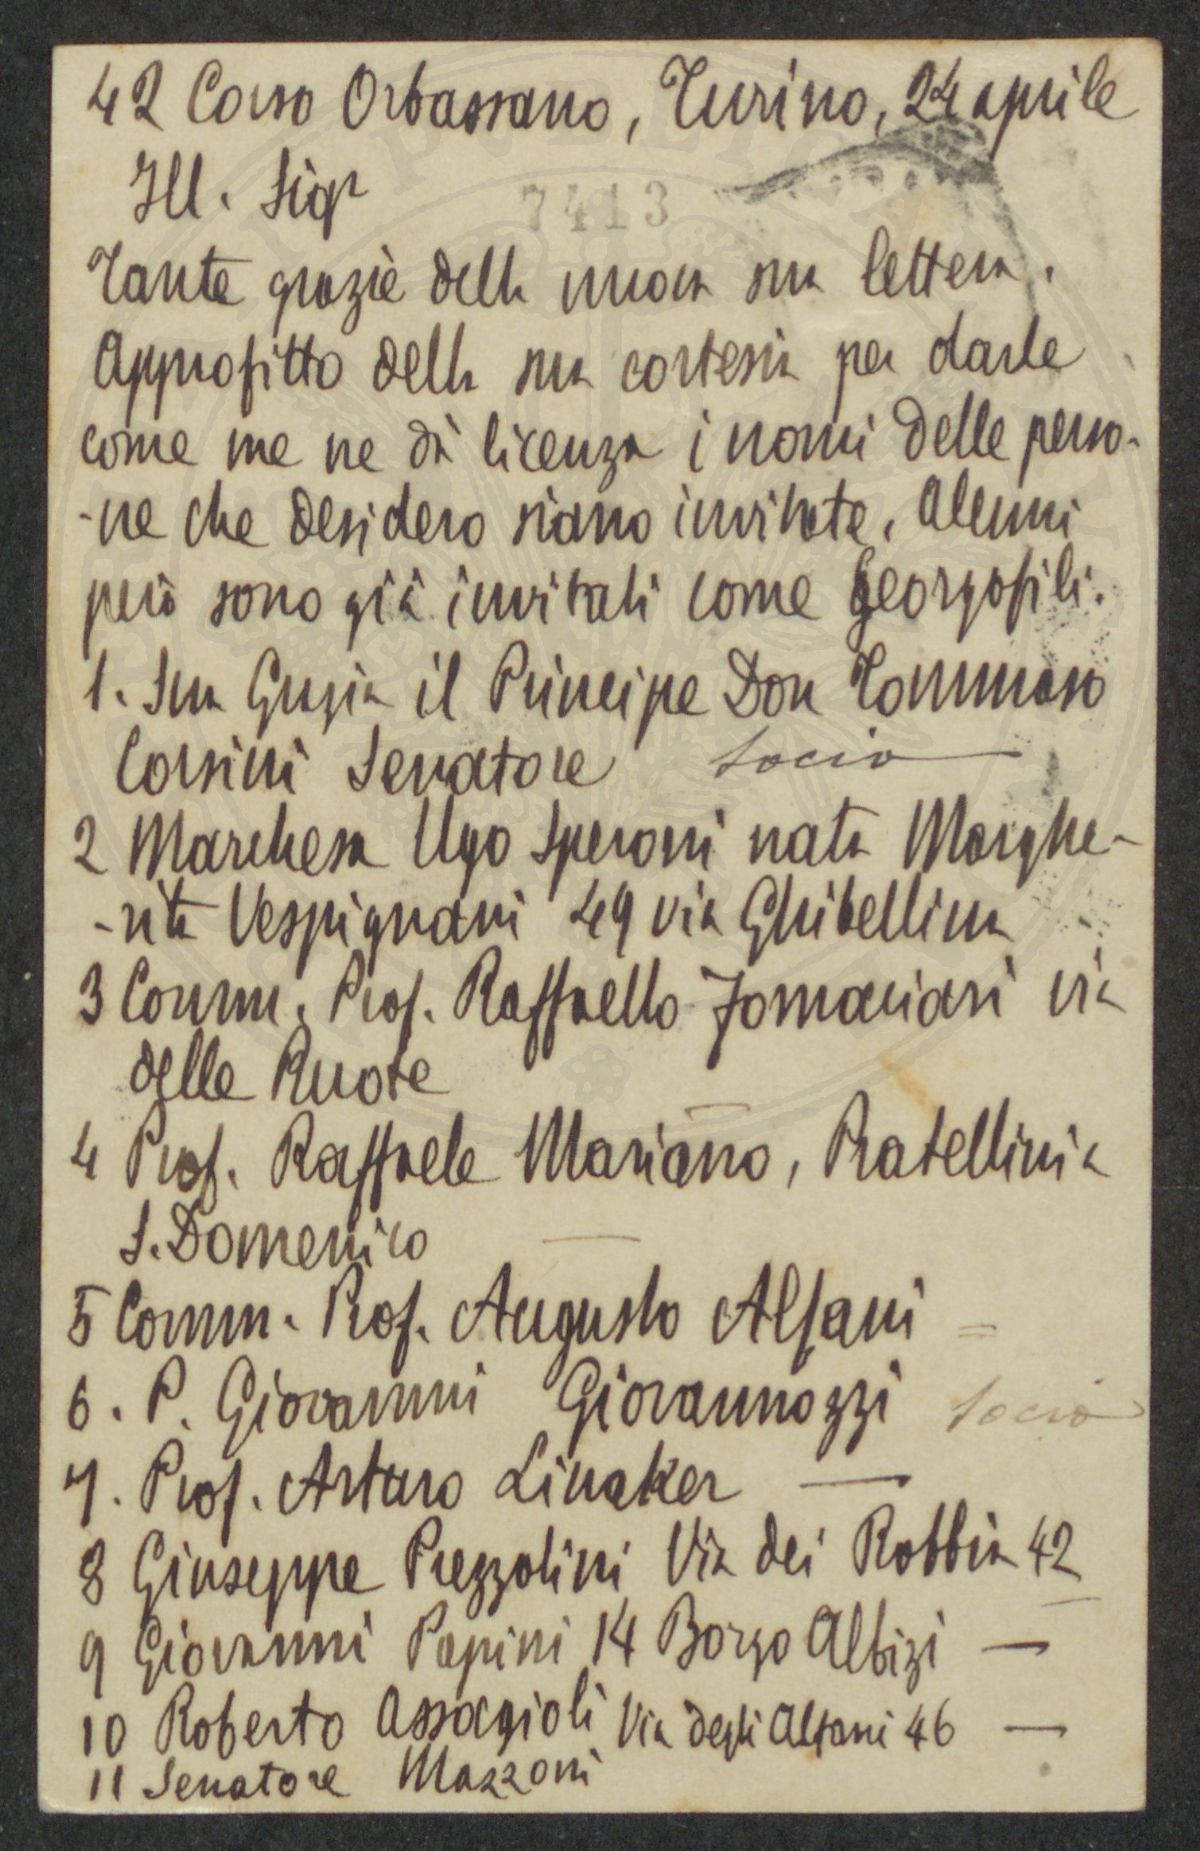 42 Corso Orbassano, Turino, 24 aprile
Ill. Sigr
7413
Tante grazie della nuova sua lettera.
Approfitto della sua cortesia per darle
come me ne dà licenza i nomi delle perso-
-ne che desidero siano invitate. Alcuni
però sono già invitati come Georgofili.
1. Sua Grazia il Principe Don Tommaso
Corsini Senatore socio
2 Marchesa Ugo Speroni nata Marghe-
-rita Vespignani 49 via Ghibellina
3 Comm. Prof. Raffaello Fornaciari via
delle Ruote
4 Prof. Raffaele Mariano, Piatellini
S. Domenico
5 Comm. Prof. Augusto Alfani
6. P. Giovanni Giovannozzi socio
7. Prof. Arturo Linaker
8 Giuseppe Prezzolini Via dei Robbia 42
9 Giovanni Papini 14 Borgo Albizi
10 Roberto Assagioli Via degli Alfani 46
11 Senatore Mazzoni